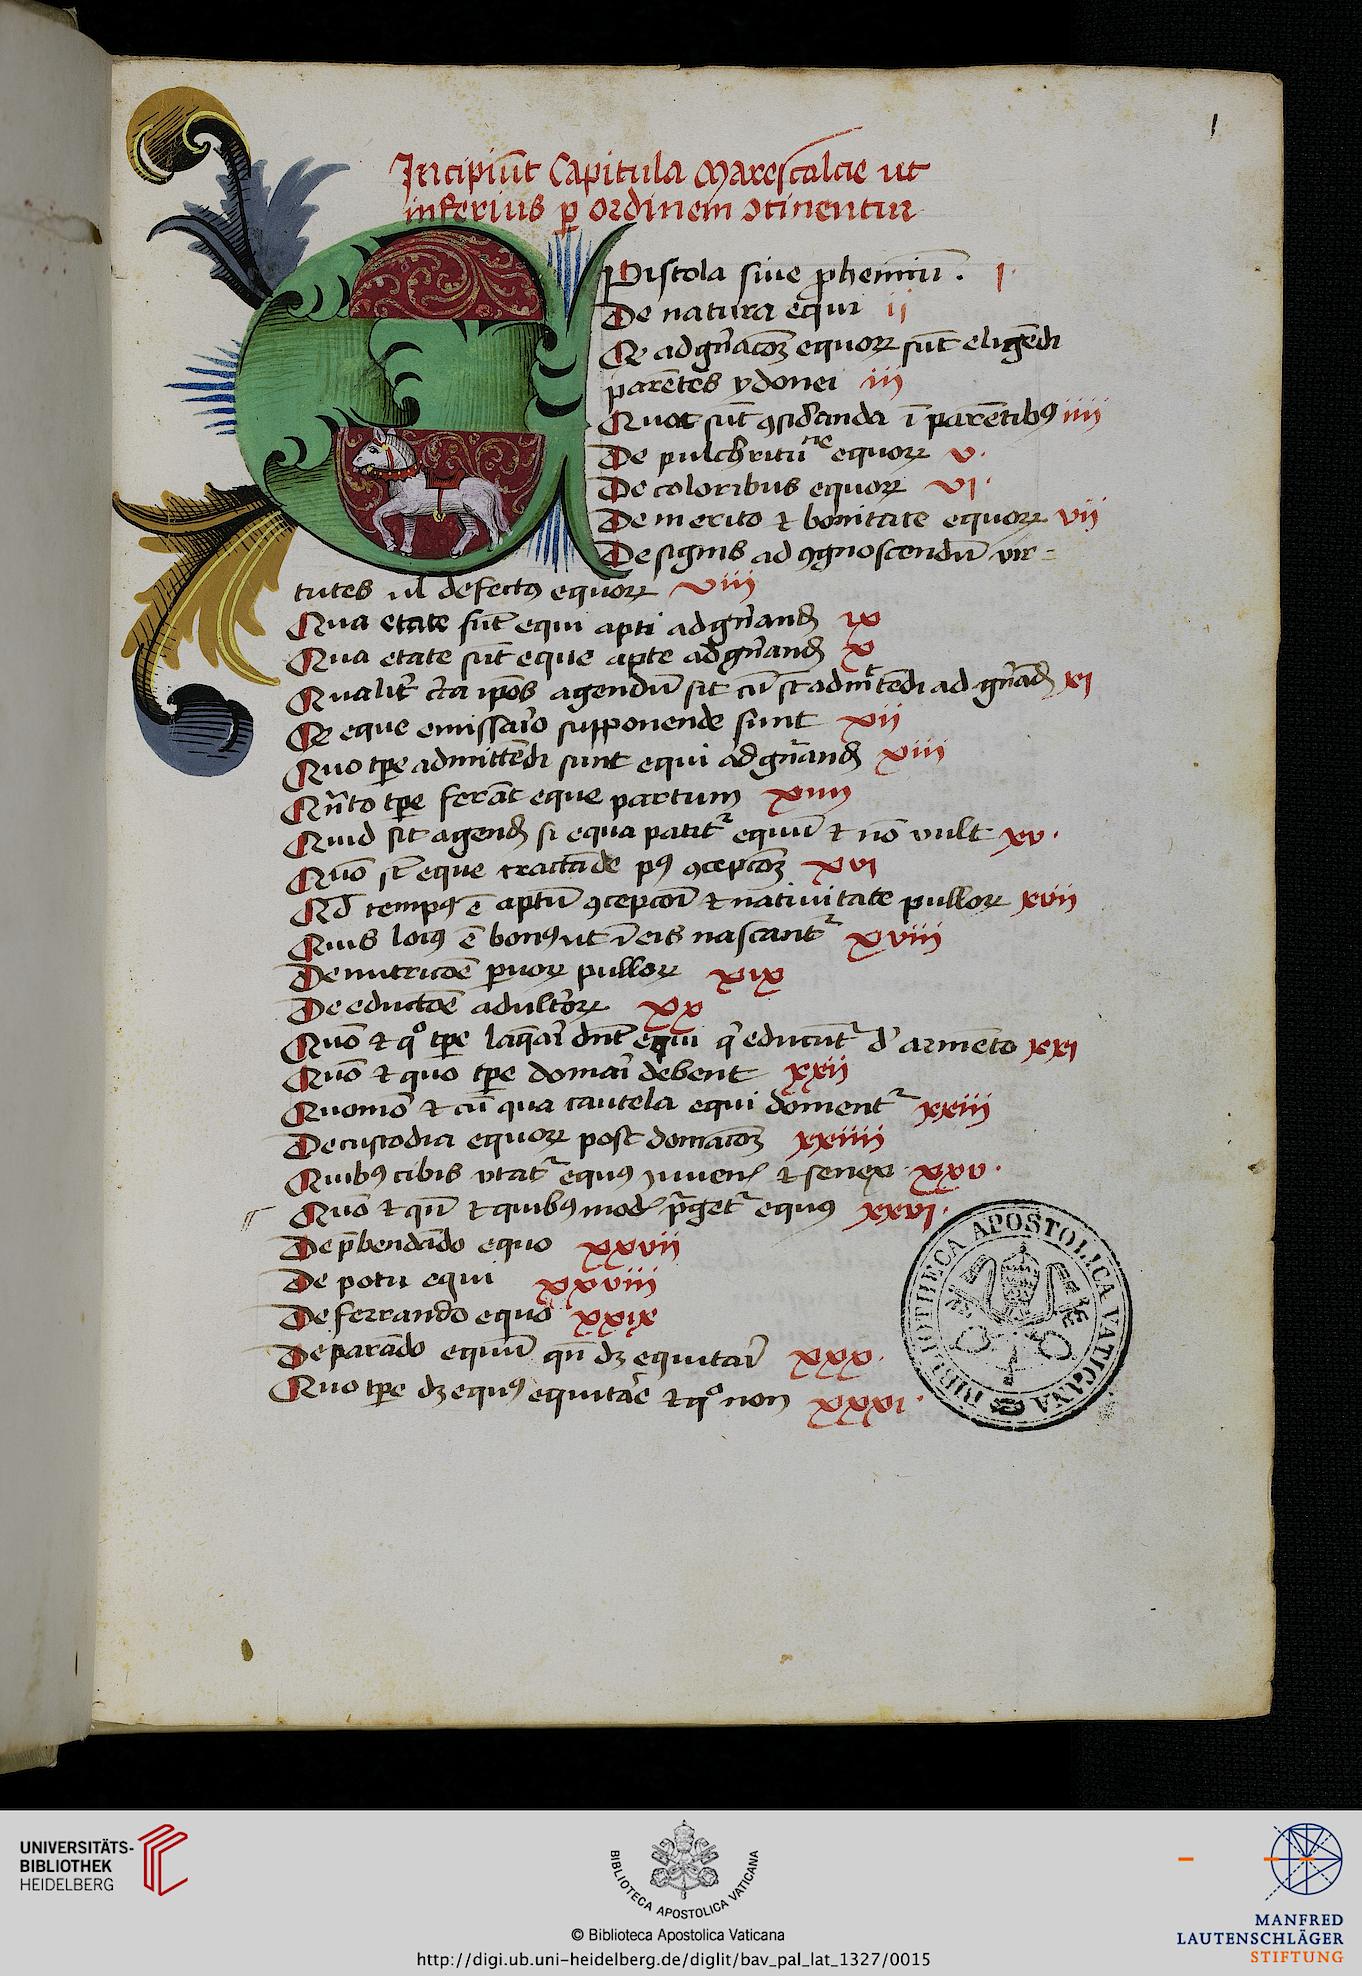 1
Incipiūt Capitula Marescalcie ut
inferius ꝑ ordinem ↄtinentur
EPistola siue ꝓhemiū . I
De natura equi ii
Qe ad gn̄acōꝫ equoꝝ sūt eligēdi
parētes ydonei iii
Quot sūt ꝯsiđanda ī parētibꝰ iiii
De pulchritūne equoꝝ v
De coloribus equoꝝ vi
De merito ⁊ bonitate equoꝝ vii
De signis ad ꝯgnoscendū vir-
tutes ul defectꝰ equoꝝ viii
Qua etate sūt equi apti ad gn̄anđ ix
Qua etate sūt eque apte ad gn̄anđ x
agendū sit cū ad gn̄ađ xi
Qe eque emissario supponende sunt xii
Quo tꝑe admittēdi sunt equi ad gn̄anđ xiii
Qn̄to tꝑe ferāt eque partum xiiii
Quid sit agenđ si equa patitr equū ⁊ nō vult xv
Quō sūt eque tractāde pꝰ ꝯcepcōꝫ xvi
Qđ tempꝰ ē aptū ꝯcepcōi ⁊ natiuitate pulloꝝ xvii
Quis locꝰ ē bonꝰ ut ī eis nascantr xviii
De nutricōe ꝑuoꝝ pulloꝝ xix
De eductōe adultoꝝ xx
Quō ⁊ qo tꝑe laq̄ari dn̄t equi q̇ educūtr d' armēto xxi
Quō ⁊ quo tꝑe domari debent xxii
Quomō ⁊ cū qua cautela equi domentr xxiii
De custodia equoꝝ post domacōꝫ xxiiii
Quibꝰ cibis vtatr equꝰ iuuenꝭ ⁊ senex xxv
Quō ⁊ qn̄ ⁊ quibꝰ modꝭ p̄getr equꝰ xxvi
De p̄bendādo equo xxvii
De potu equi xxviii
De ferrando equo xxix
De parādo equū qn̄ dꝫ equitari xxx
Quo tꝑe dꝫ equꝰ equitare ⁊ qo non xxxi
BIBLIOTHECA APOSTOLICA VATICANA
UNIVERSITÄTS-
BIBLIOTHEK
HEIDELBERG
BIBLIOTECA APOSTOLICA VATICANA
© Biblioteca Apostolica Vaticana
http://digi.ub.uni-heidelberg.de/diglit/bav_pal_lat_1327/0015
MANFRED
LAUTENSCHLÄGER
STIFTUNG